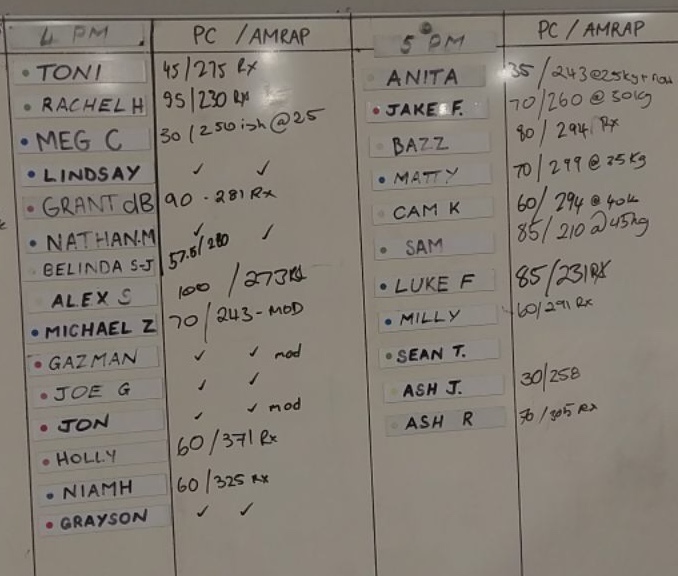 4 PM PC / AMRAP
TONI 45/275 Rx
RACHEL H 95/230 Rx
MEG C 30/250 ish @ 25
LINDSAY ✓ ✓
GRANT dB 90 - 281 Rx
NATHAN.M ✓ ✓
BELINDA S-J 57.5/280
ALEX S 100 / 273 Rx
MICHAEL Z 70/243 - MOD
GAZMAN ✓ ✓ mod
JOE G ✓ ✓
JON ✓ ✓ mod
HOLLY 60/371 Rx
NIAMH 60/325 Rx
GRAYSON ✓ ✓
5 PM PC / AMRAP
ANITA 35/243 @ 25kg +
JAKE F. 70/260 @ 30kg
BAZZ 80/294 Rx
MATTY 70/299 @ 25kg
CAM K 60/294 @ 40k
SAM 85/210 @ 45kg
LUKE F 85/231 Rx
MILLY 60/291 Rx
SEAN T.
ASH J. 30/258
ASH R /305 Rx